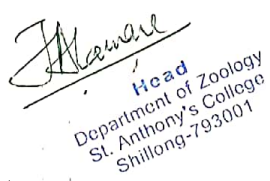 Head
Department of Zoology
St. Anthony's College
Shillong-793001